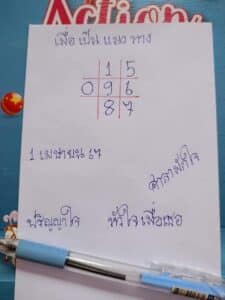 Action
เพื่อ เป็น แนว ทาง
1 5
0 9 6
8 7
1 เมษายน 67
ดาราพักใจ
ปริญญาใจ หัวใจเพื่อเธอ